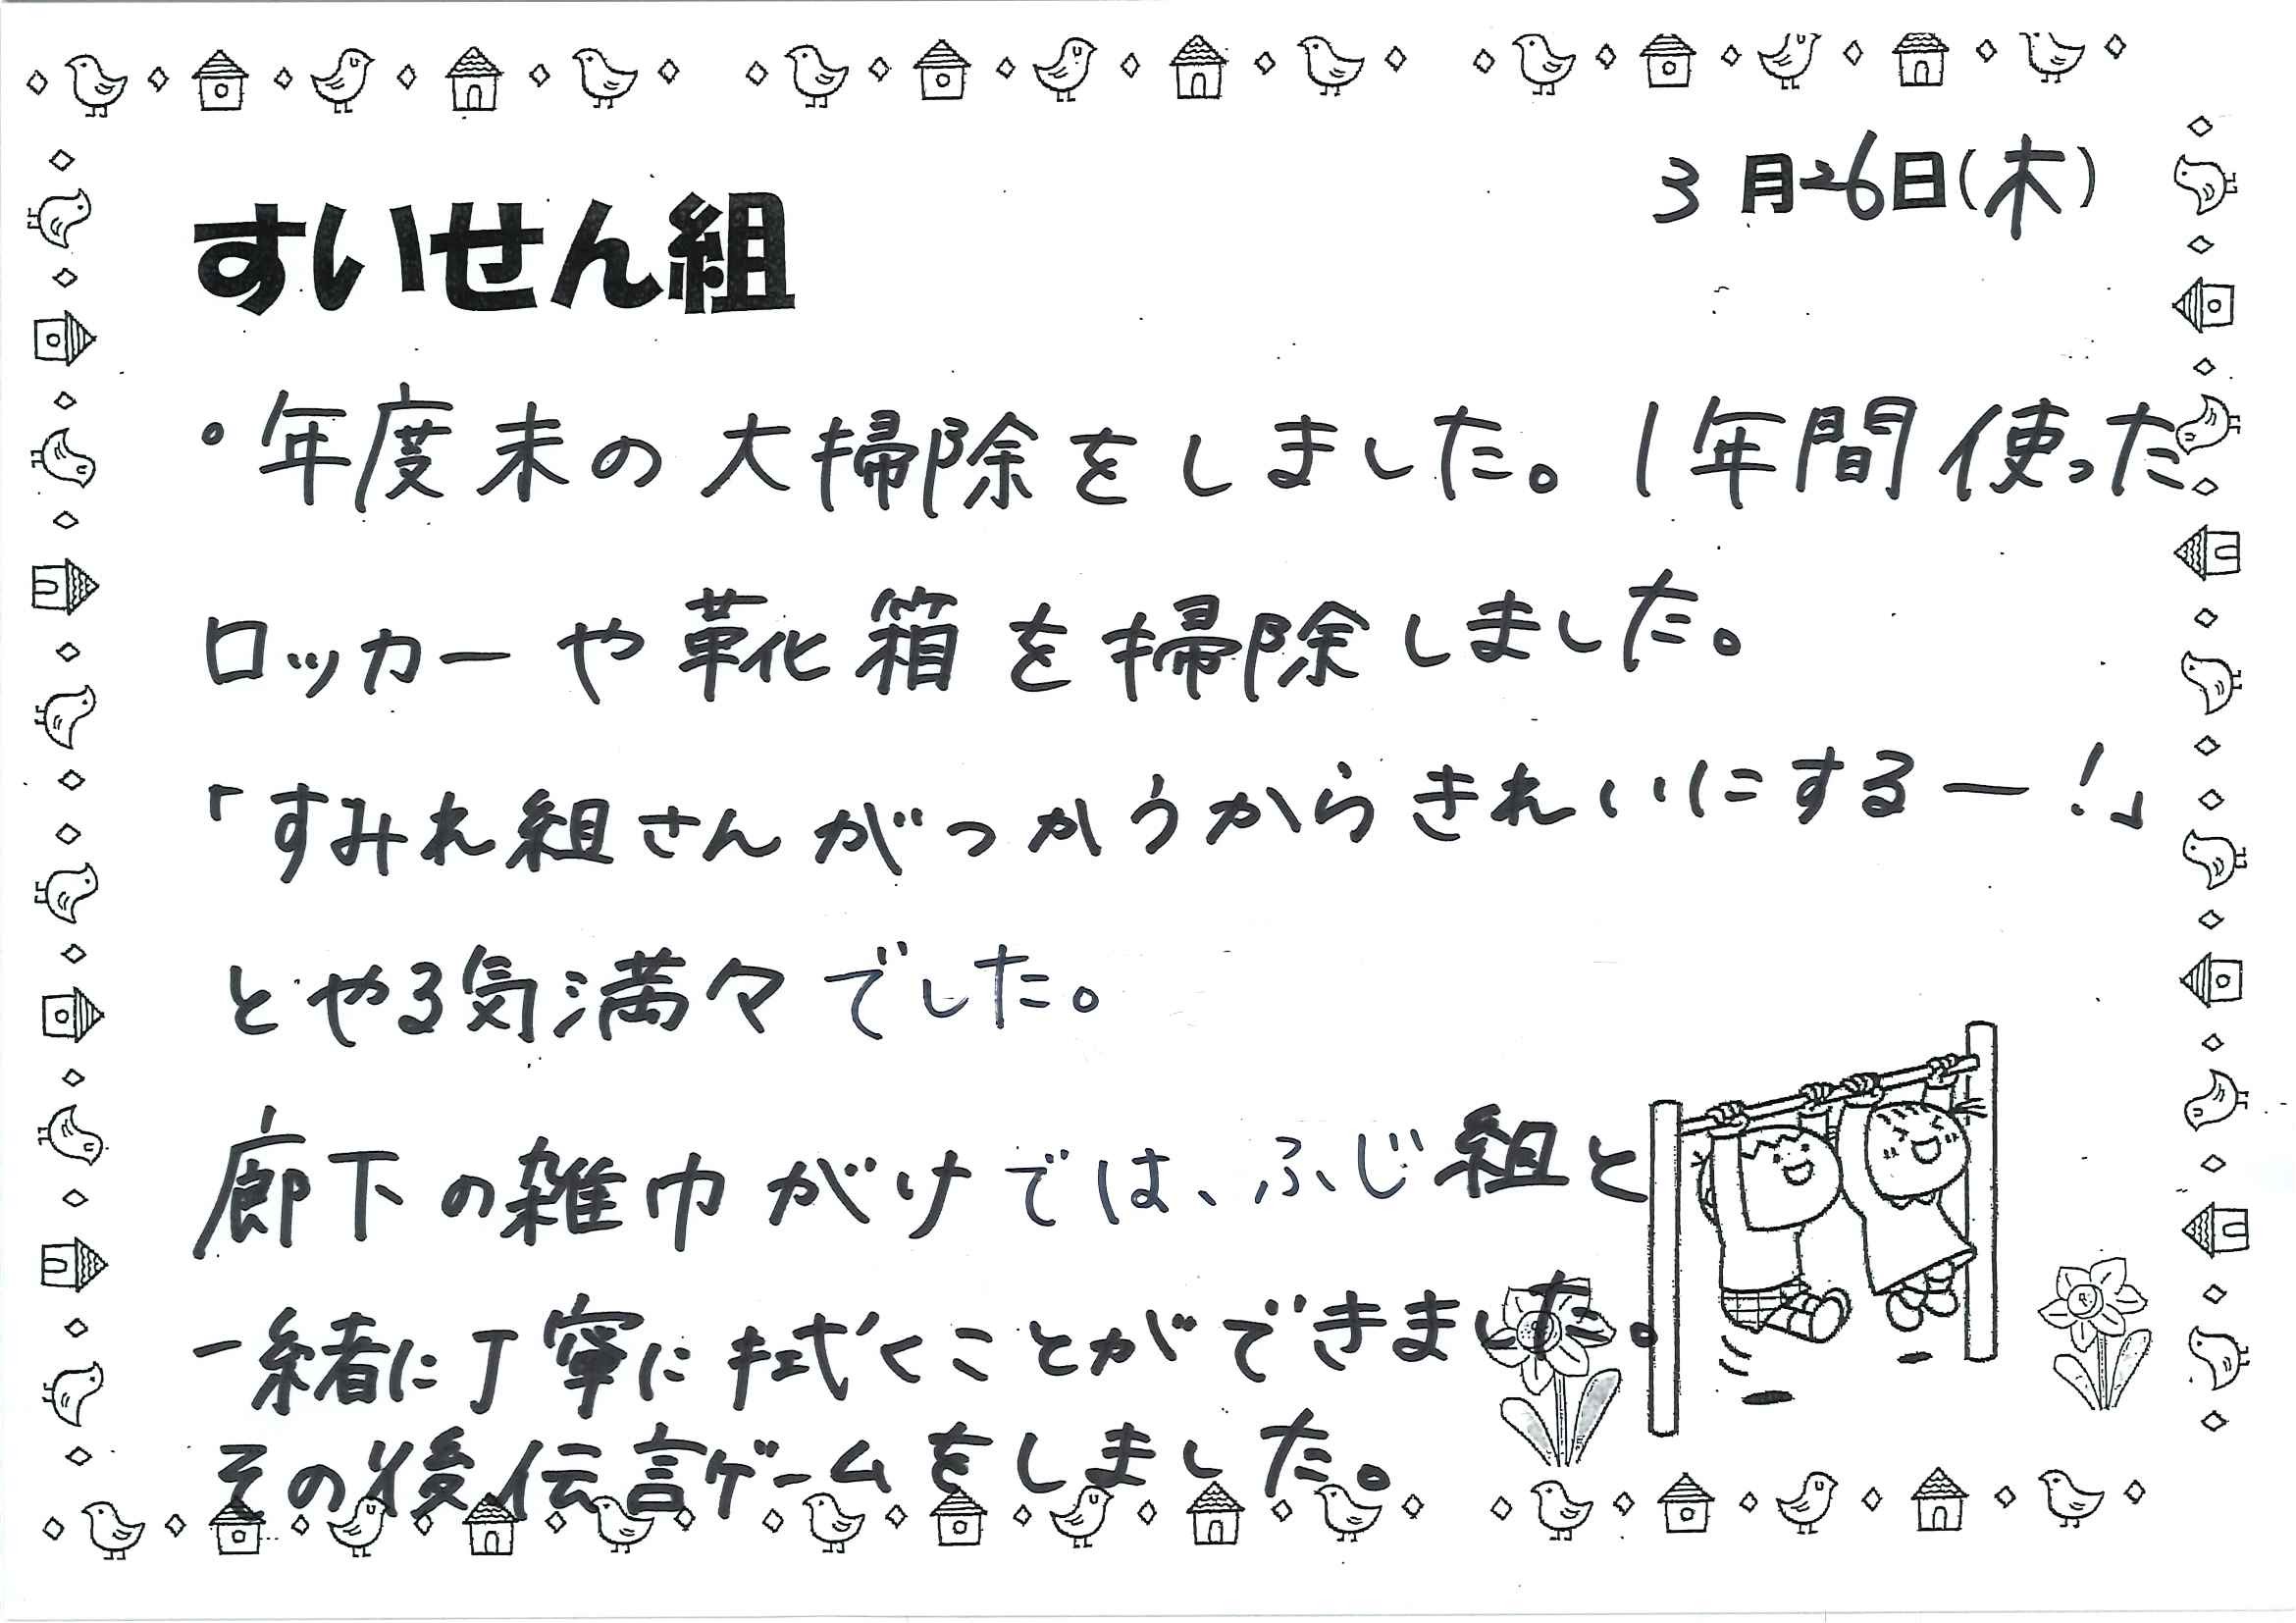 3月26日(木)
すいせん組
・年度末の大掃除をしました。1年間使った
ロッカーや靴箱を掃除しました。
「すみれ組さんがつかうからきれいにするー!」
とやる気満々でした。
廊下の雑巾がけでは、ふじ組と
一緒に丁寧に拭くことができました。
その後伝言ゲームをしました。